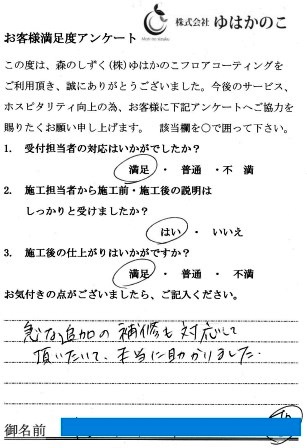 株式会社 ゆはかのこ
お客様満足度アンケート
この度は、森のしずく(株)ゆはかのこフロアコーティングを
ご利用頂き、誠にありがとうございました。今後のサービス、
ホスピタリティ向上の為、お客様に下記アンケートへご協力を
賜りたくお願い申し上げます。 該当欄を○で囲って下さい。
1. 受付担当者の対応はいかがでしたか?
満足 ・ 普通 ・不 満
2. 施工担当者から施工前・施工後の説明は
しっかりと受けましたか?
はい ・ いいえ
3. 施工後の仕上がりはいかがですか?
満足 ・ 普通 ・ 不満
お気付きの点がございましたら、ご記入ください。
急な追加の補修も対応して
頂いたいて、本当に助かりました.
御名前